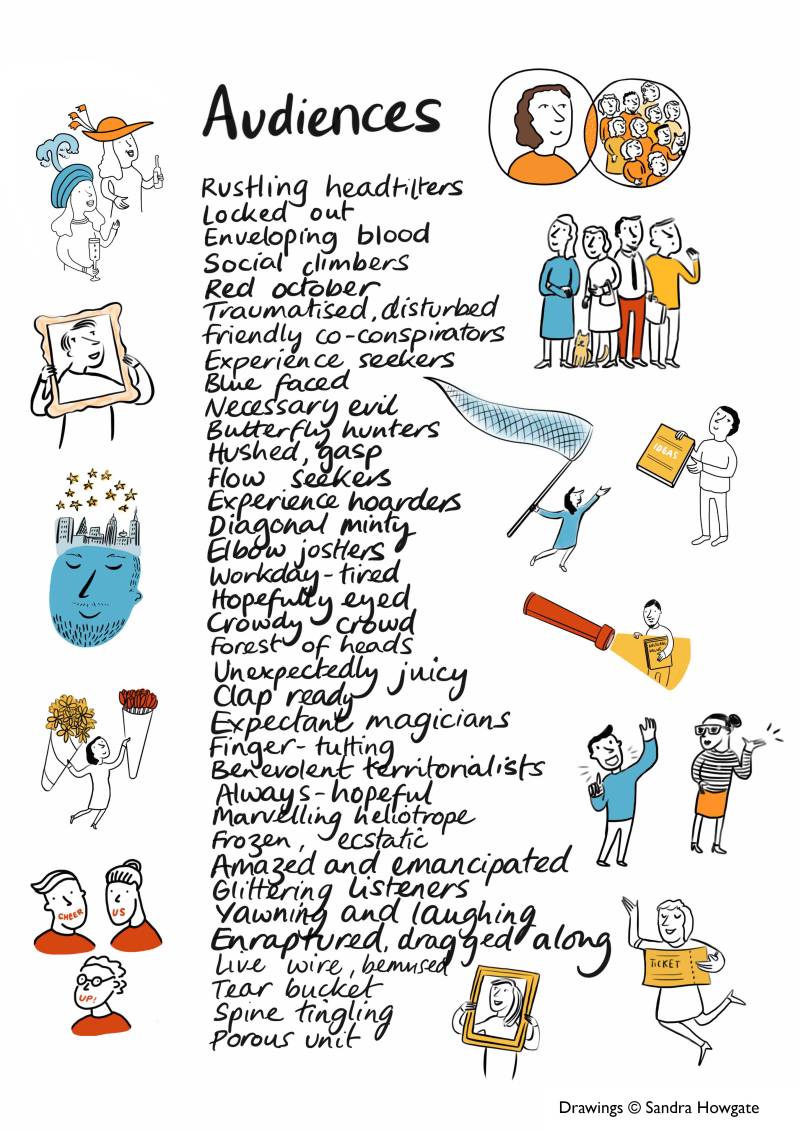 Audiences
Rustling headtilters
Locked out
Enveloping blood
Social climbers
Red october
Traumatised, disturbed
friendly co-conspirators
Experience seekers
Blue faced
Necessary evil
Butterfly hunters
Hushed, gasp
Flow seekers
Experience hoarders
Diagonal minty
Elbow jostlers
Workday-tired
Hopefully eyed
Crowdy crowd
Forest of heads
Unexpectedly juicy
Clap ready
Expectant magicians
Finger-tutting
Benevolent territorialists
Always-hopeful
Marvelling heliotrope
Frozen, ecstatic
Amazed and emancipated
Glittering listeners
Yawning and laughing
Enraptured, dragged along
Live wire, bemused
Tear bucket
Spine tingling
Porous unit
IDEAS
CHEER
US
UP!
TICKET
Drawings © Sandra Howgate